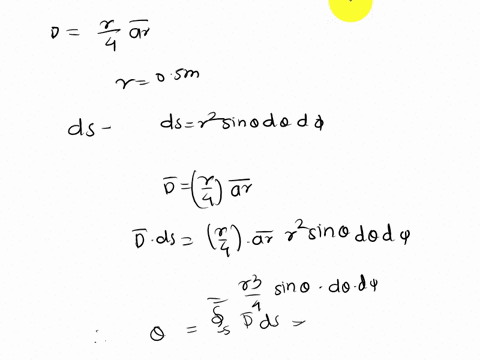 D = r/4 a̅r
r = 0.5m
ds - ds = r² sinθ dθ dϕ
D̅ = (r/4) a̅r
D̅ · ds = (r/4) · a̅r r² sinθ dθ dφ
= r3/4 sinθ · dθ · dφ
∴ θ = ∮s D̅ ds =